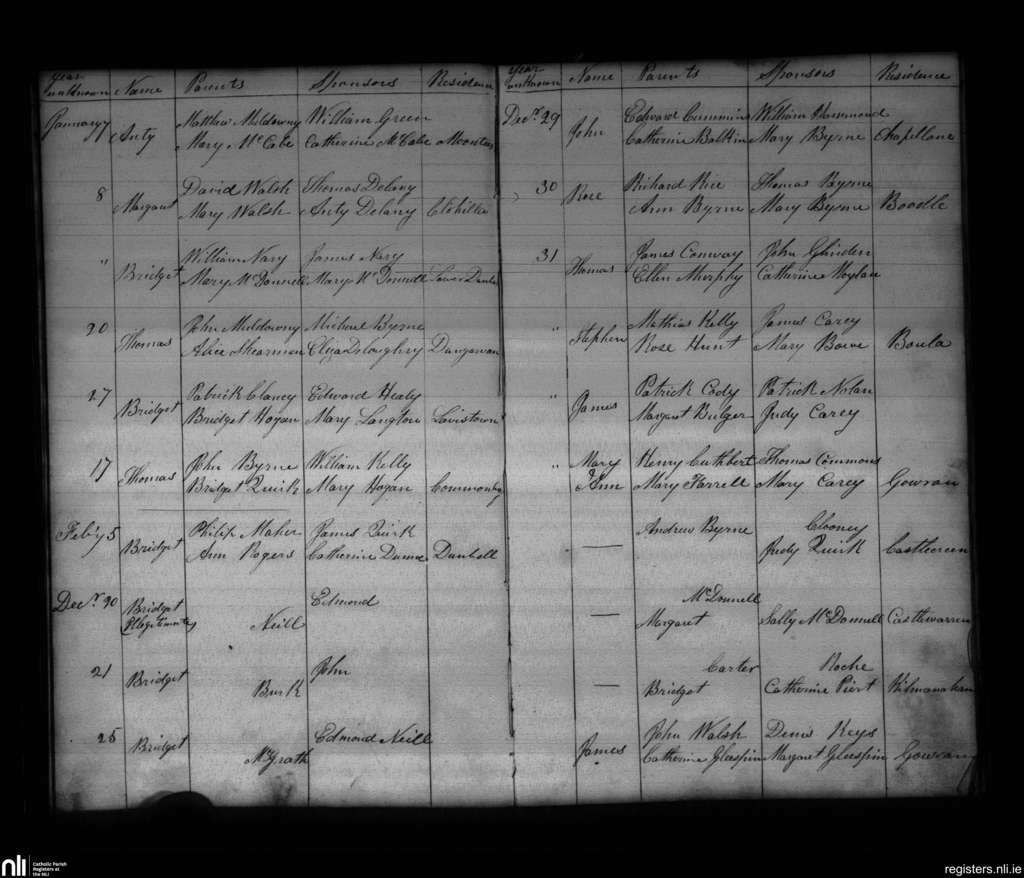 Year unknown Name Parents Sponsors Residence
January 7 Anty Matthew Muldowny William Green
Mary McCabe Catherine McCabe Mountain
8 Margaret David Walsh Thomas Delany
Mary Walsh Anty Delany Clohilla
" Bridget William Nary James Nary
Mary McDonnell Mary McDonnell Lower Dunbell
20 Thomas John Muldowny Micheal Byrne
Alice Shearman Eliza Doloughry Dungarvan
27 Bridget Patrick Clancy Edward Healy
Bridget Hogan Mary Langton Lavistown
17 Thomas John Byrne William Kelly
Bridget Quirk Mary Hogan
Feby 5 Bridget Philip Maher James Quirk
Ann Rogers Catherine Dunne Dunbell
Decr 20 Bridget Edmond
Illegitimate Neill
21 Bridget John
Burk
25 Bridget Edmond Neill
McGrath
Year unknown Name Parents Sponsors Residence
Decr 29 John Edward Cummins William Hammond
Catherine Mary Byrne Chapellane
30 Rose Richard Rice Thomas Byrne
Ann Byrne Mary Byrne Boodle
31 Thomas James Conway John
Ellen Murphy Catherine Moylan
" Stephen Mathias Kelly James Carey
Rose Hunt Mary Bowe Boula
" James Patrick Cody Patrick Nolan
Margaret Bulger Judy Carey
" Mary Henry Cuthbert Thomas Commons
& Ann Mary Farrell Mary Carey Gowran
— Andrew Byrne Clooney
Judy Quirk
— McDonnell
Margaret Sally McDonnell Castlewarren
— Carter Roche
Bridget Catherine Piert Kilmanahan
James John Walsh Denis Keys
Catherine Gleespin Margaret Gleespin Gowran
nli Catholic Parish
Registers at
the NLI
registers.nli.ie